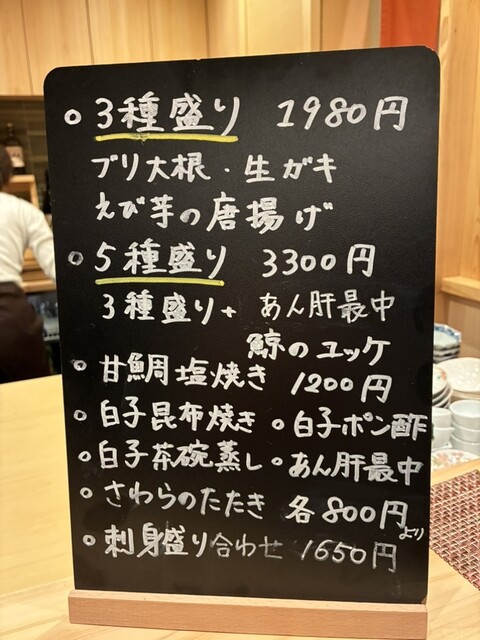 ○ 3種盛り 1980円
ブリ大根・生ガキ
えび芋の唐揚げ
○ 5種盛り 3300円
3種盛り+ あん肝最中
鯨のユッケ
○ 甘鯛塩焼き 1200円
○ 白子昆布焼き ○ 白子ポン酢
○ 白子茶碗蒸し ○ あん肝最中
○ さわらのたたき 各800円より
○ 刺身盛り合わせ 1650円